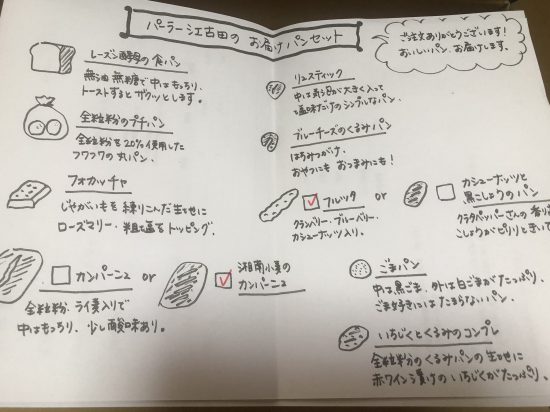 パーラー江古田の お届けパンセット
ご注文ありがとうございます!
おいしいパン、お届けします。
レーズン酵母の食パン
無油 無糖で中はもっちり、
トーストするとザクッとします。
全粒粉のプチパン
全粒粉を20%使用した
フワフワの丸パン。
フォカッチャ
じゃがいもを練りこんだ生地に
ローズマリー・粗塩をトッピング。
カンパーニュ or 湘南小麦の
カンパーニュ
全粒粉・ライ麦入りで
中はもっちり、少し酸味あり。
リュスティック
中は気泡が大きく入って
塩味だけのシンプルなパン。
ブルーチーズのくるみパン
はちみつがけ。
おやつにも おつまみにも!
フルッタ or
クランベリー・ブルーベリー・
カシューナッツ入り。
カシューナッツと
黒こしょうのパン
クラタペッパーさんの香り
こしょうがピリッときいて
ごまパン
中は黒ごま、外は白ごまがたっぷり。
ごま好きにはたまらないパン。
いちじくとくるみのコンプレ
全粒粉のくるみパンの生地に
赤ワイン漬けのいちじくがたっぷり。